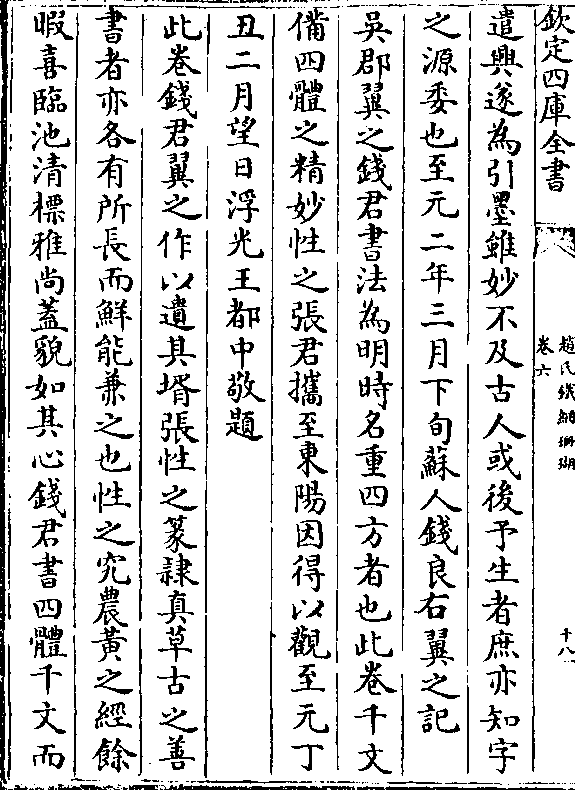 欽定四庫全書
趙氏鐵網珊瑚
卷六
十八
遣興遂為引墨雖妙不及古人或後予生者庶亦知字
之源委也至元二年三月下旬蘇人錢良右翼之記
吳郡翼之錢君書法為明時名重四方者也此卷千文
備四體之精妙性之張君攜至東陽因得以觀至元丁
丑二月望日浮光王都中敬題
此卷錢君翼之作以遺其壻張性之篆隷真草古之善
書者亦各有所長而鮮能兼之也性之究農黃之經餘
暇喜臨池清標雅尚蓋貌如其心錢君書四體千文而